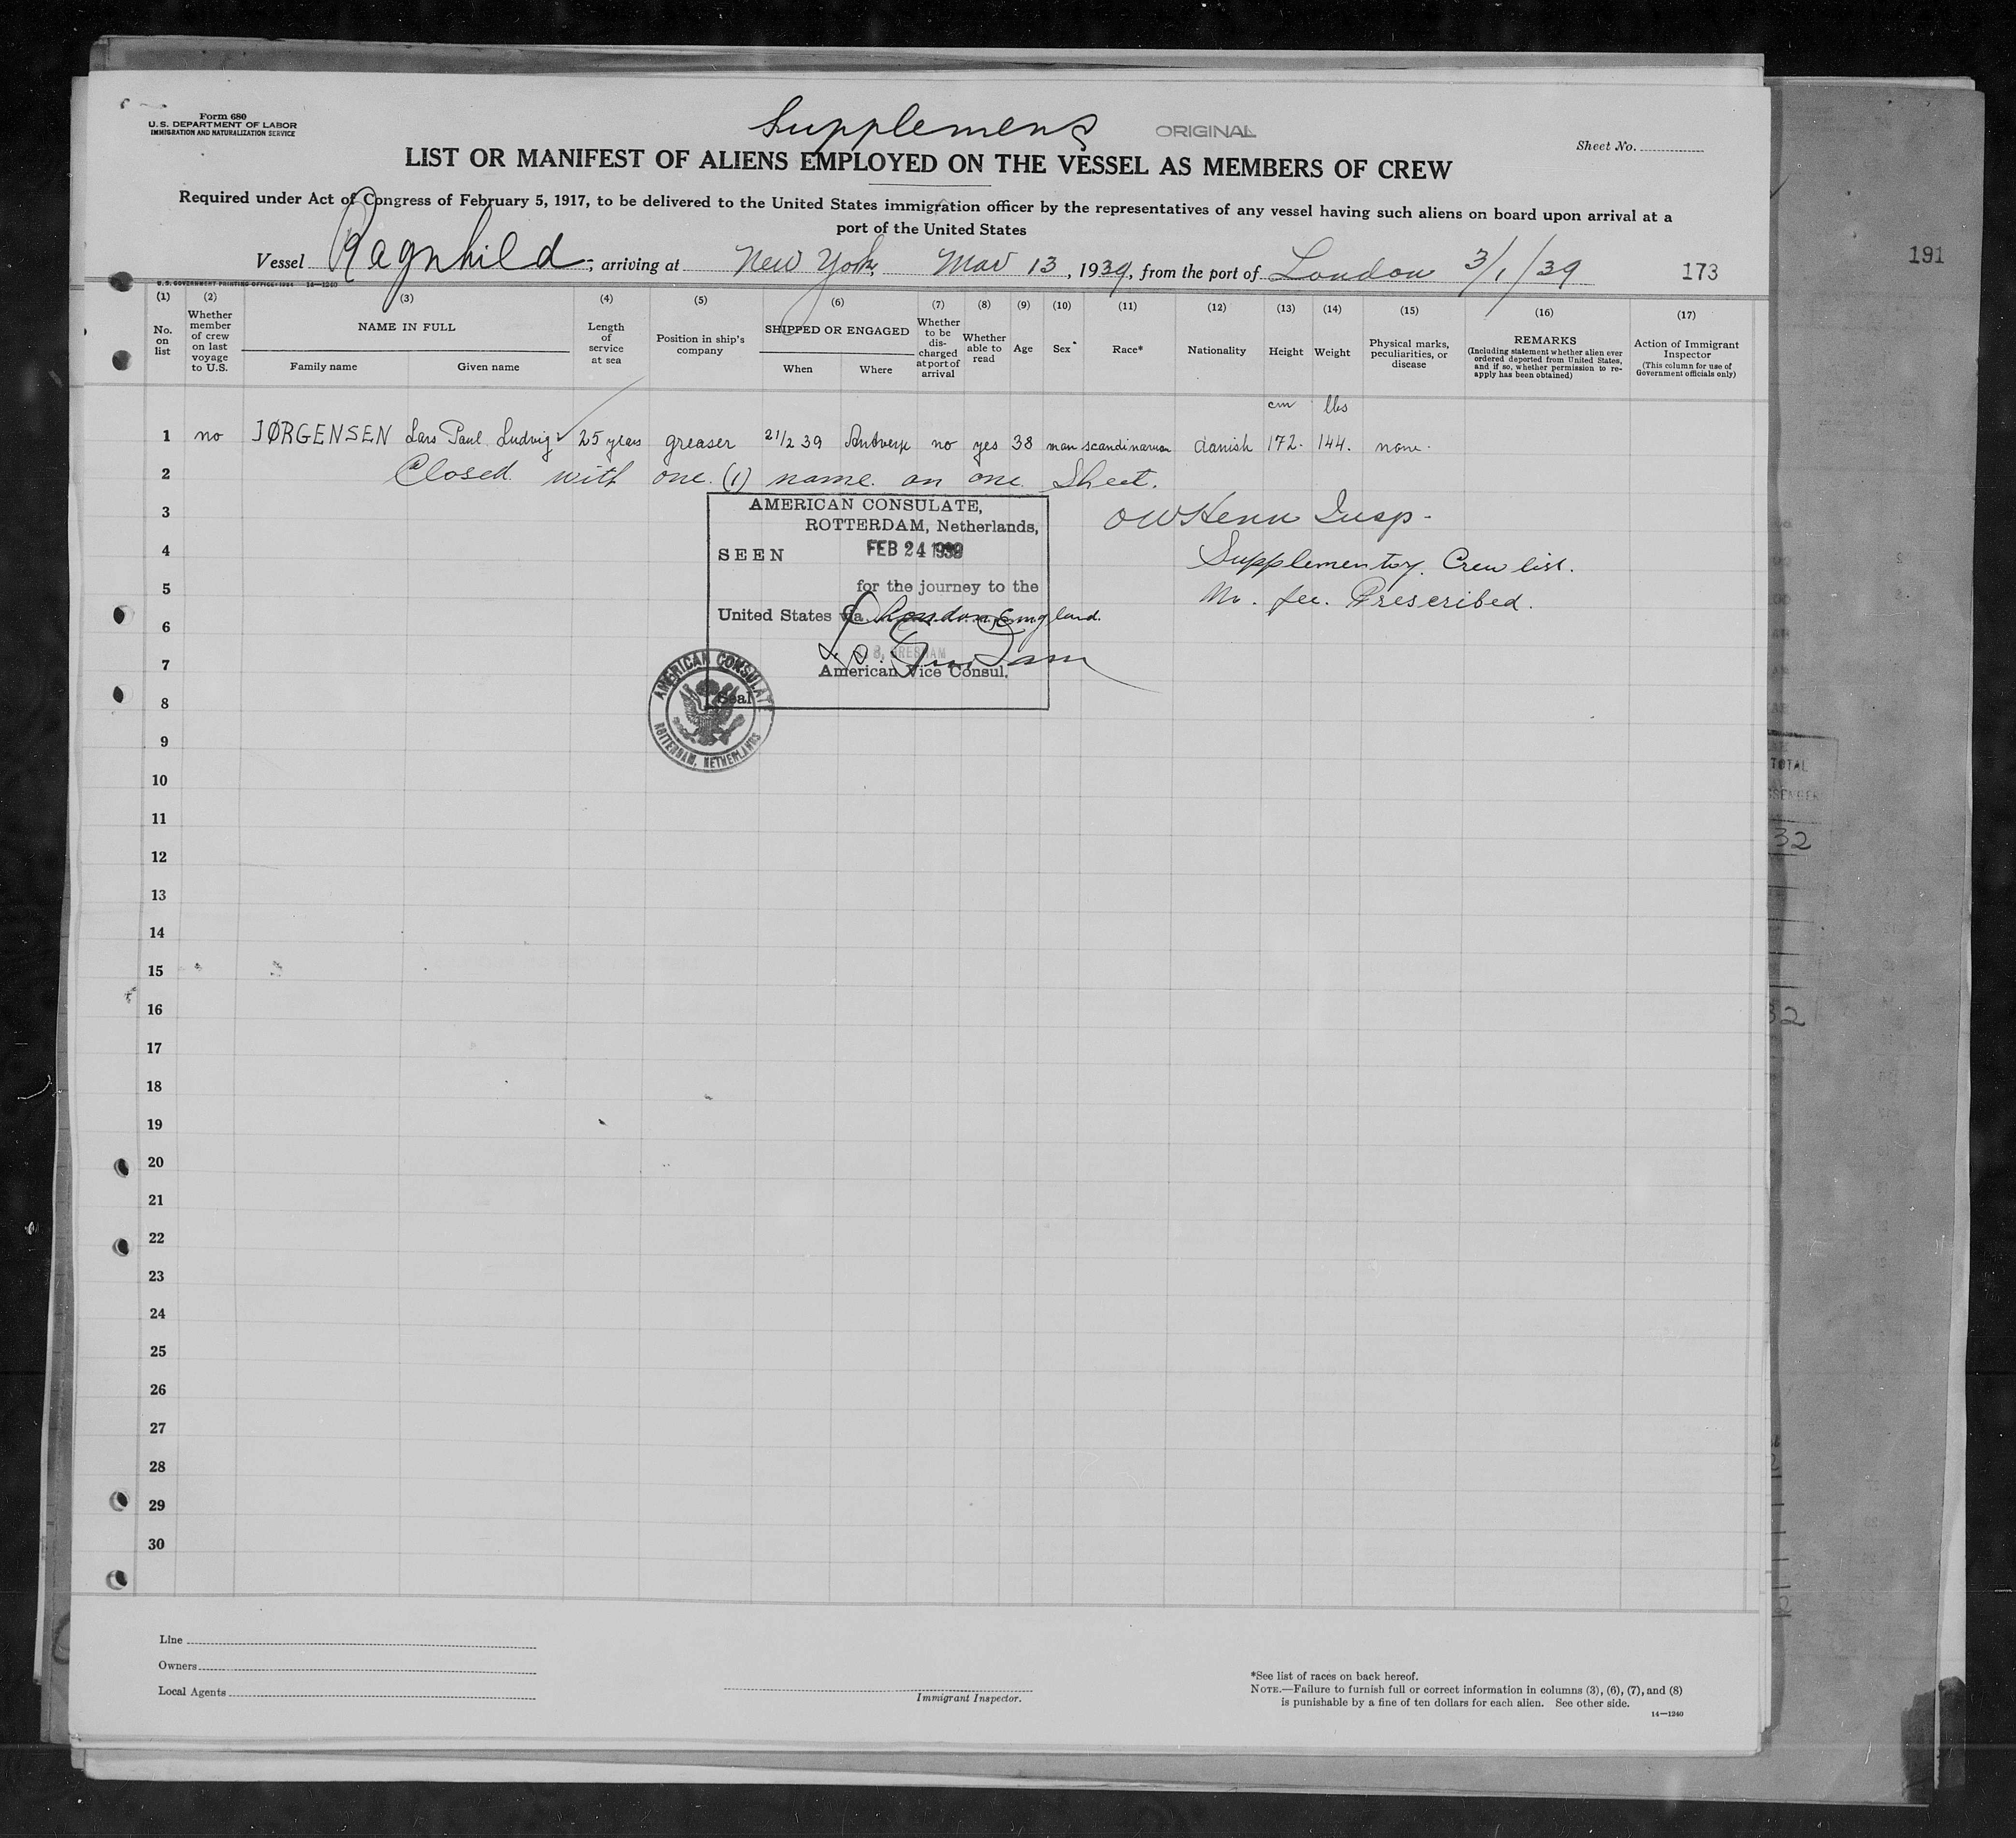 Form 680
U.S. DEPARTMENT OF LABOR
IMMIGRATION AND NATURALIZATION SERVICE
Supplement
ORIGINAL
Sheet No.
LIST OR MANIFEST OF ALIENS EMPLOYED ON THE VESSEL AS MEMBERS OF CREW
Required under Act of Congress of February 5, 1917, to be delivered to the United States immigration officer by the representatives of any vessel having such aliens on board upon arrival at a
port of the United States
Vessel Ragnhild, arriving at New York, Mar 13, 1939, from the port of London 3/1/39
173
191
U.S. GOVERNMENT PRINTING OFFICE: 1934 14—1240
(1) (2) (3) (4) (5) (6) (7) (8) (9) (10) (11) (12) (13) (14) (15) (16) (17)
No. on list
Whether member of crew on last voyage to U.S.
NAME IN FULL
Family name Given name
Length of service at sea
Position in ship's company
SHIPPED OR ENGAGED
When Where
Whether to be discharged at port of arrival
Whether able to read
Age
Sex
Race*
Nationality
Height
Weight
Physical marks, peculiarities, or disease
REMARKS
(Including statement whether alien ever ordered deported from United States, and if so, whether permission to re-apply has been obtained)
Action of Immigrant Inspector
(This column for use of Government officials only)
cm lbs
1 no JØRGENSEN Lars Paul Ludvig 25 years greaser 21/2 39 Antwerp no yes 38 man scandinavian danish 172. 144. none.
2 Closed with one (1) name on one Sheet.
3 Insp-
4
5
6
7
8
9
10
11
12
13
14
15
16
17
18
19
20
21
22
23
24
25
26
27
28
29
30
AMERICAN CONSULATE,
ROTTERDAM, Netherlands,
SEEN FEB 24 1939
for the journey to the
United States via London, England.
American Vice Consul.
Seal
AMERICAN CONSULATE
ROTTERDAM, NETHERLANDS
Supplementary Crew list.
No. fee. Prescribed.
TOTAL
32
32
Line
Owners
Local Agents
Immigrant Inspector.
*See list of races on back hereof.
NOTE.—Failure to furnish full or correct information in columns (3), (6), (7), and (8)
is punishable by a fine of ten dollars for each alien. See other side.
14—1240